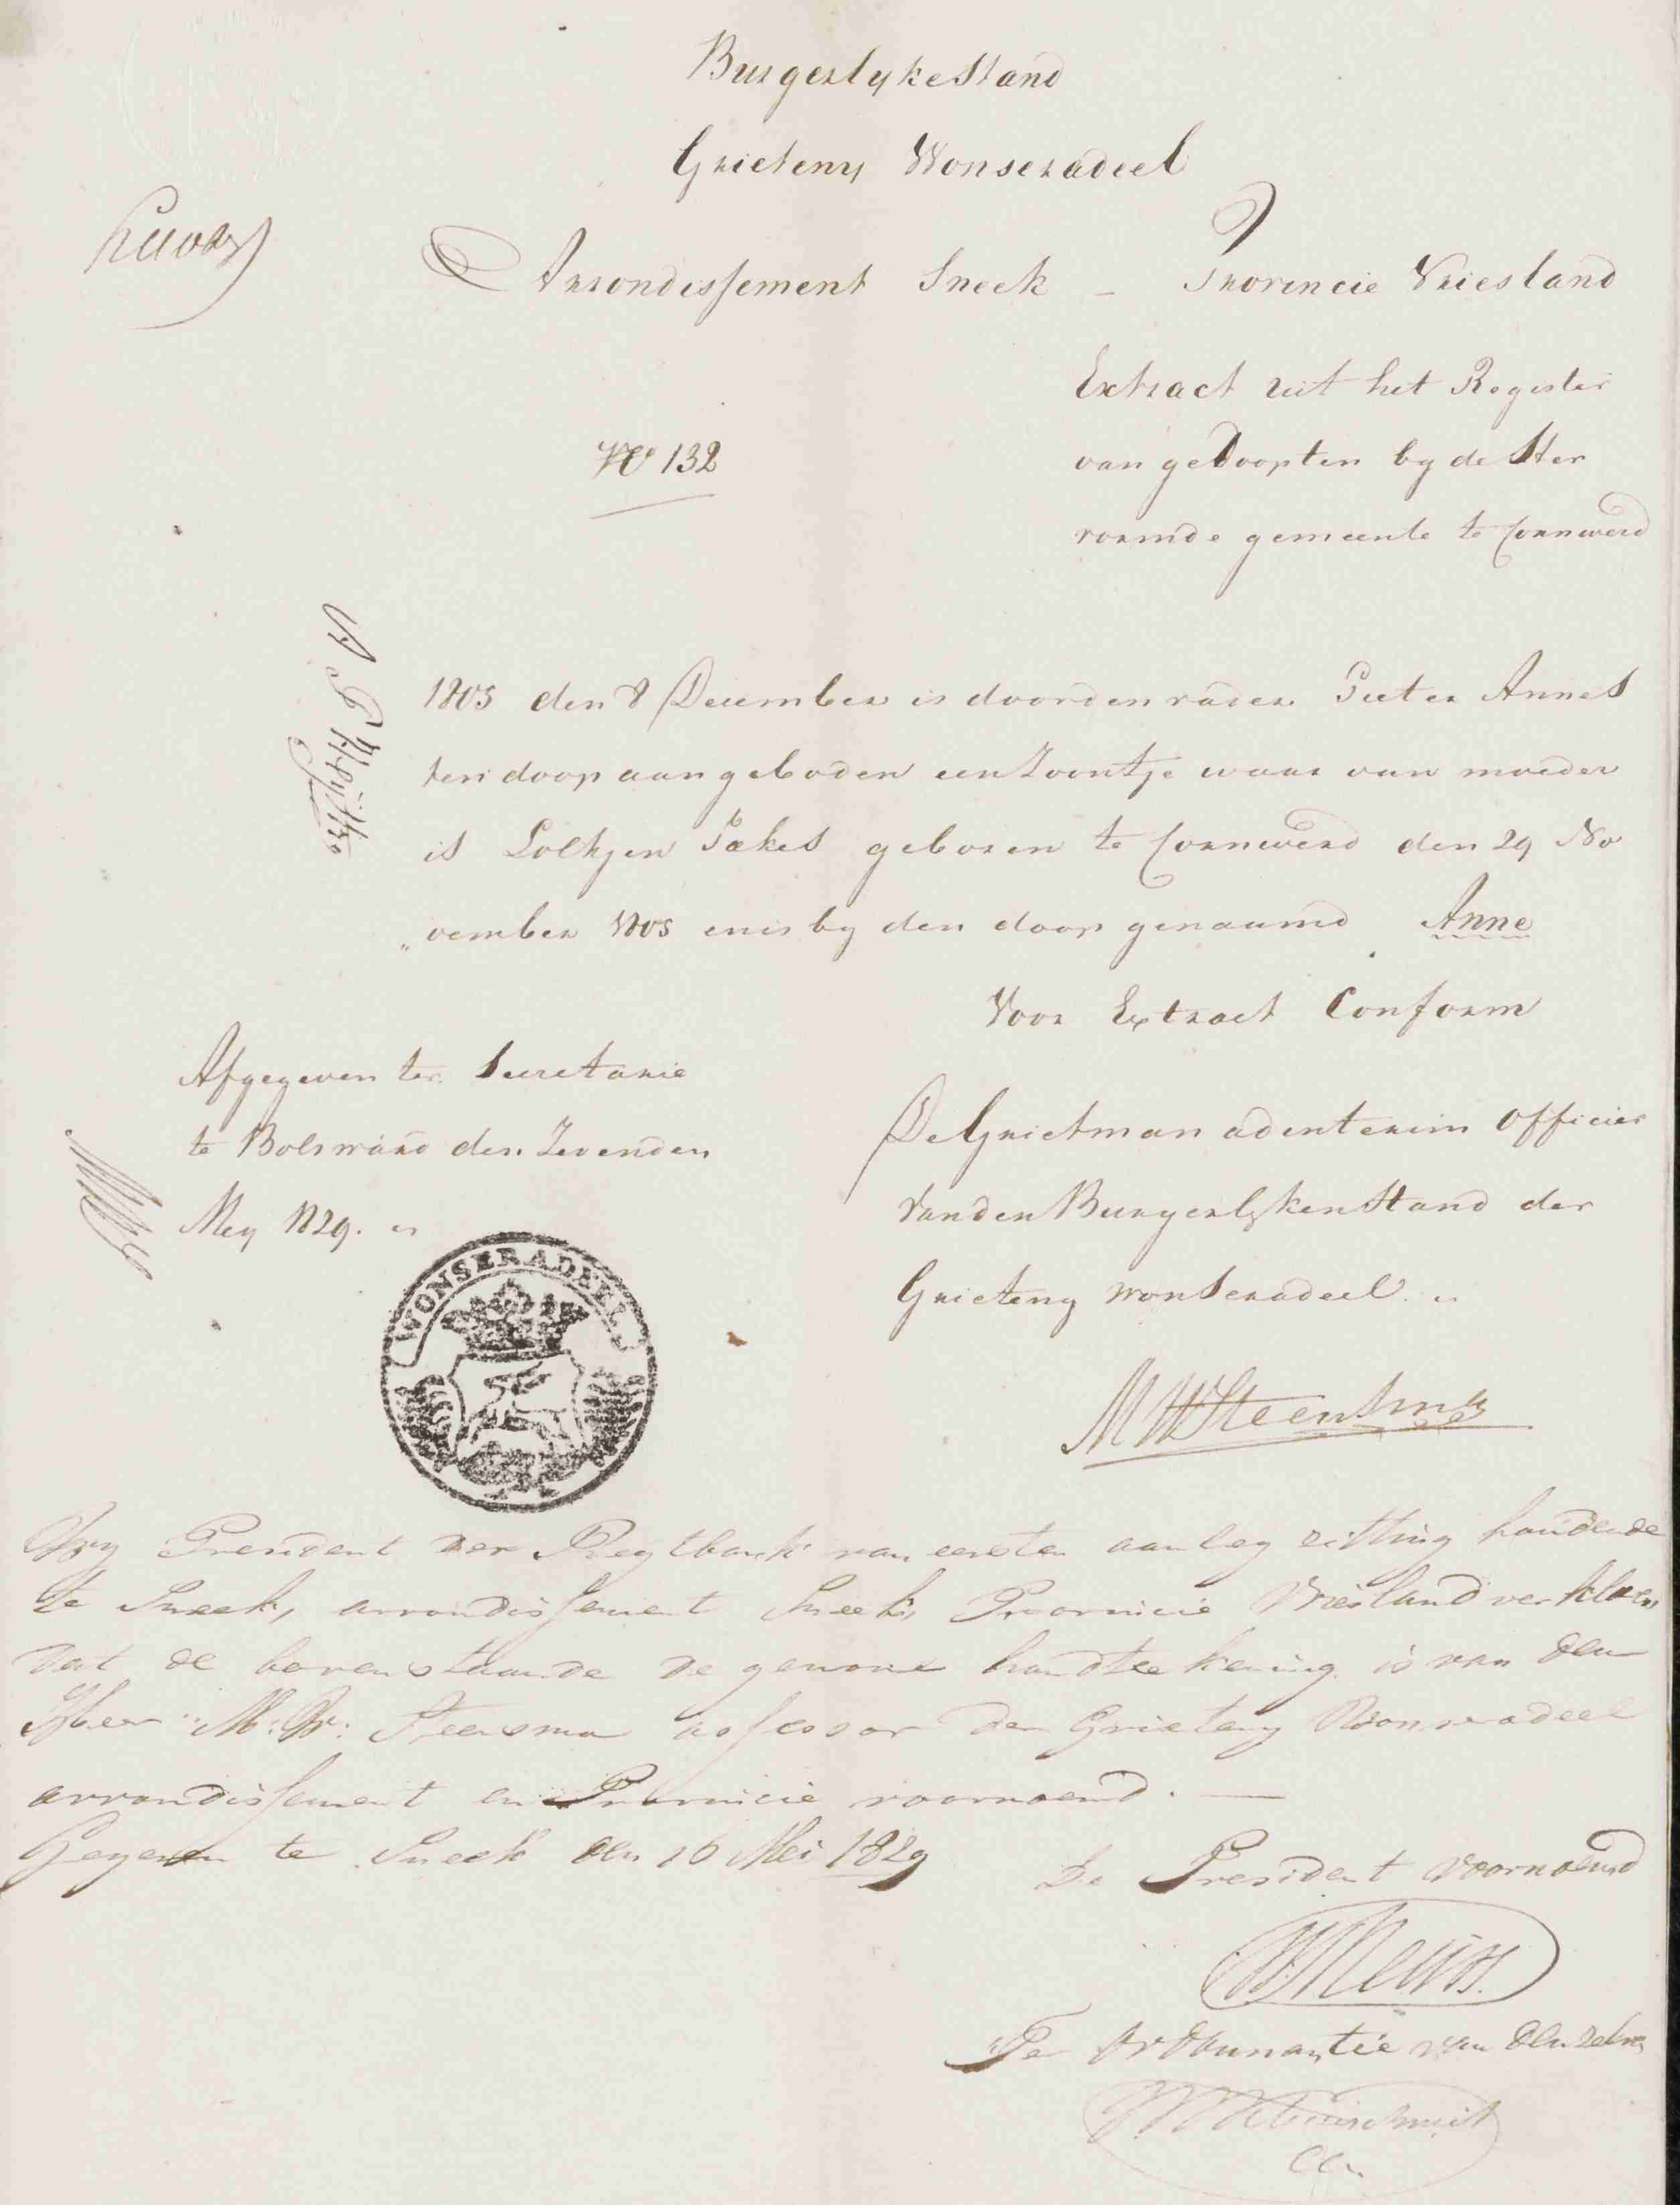 Burgerlyke Stand
Grieteny Wonseradeel
Arrondissement Sneek – Provincie Vriesland
Extract uit het Register
van gedoopten by de Her
vormde gemeente te Cornwerd
No 132
1805 den 8 December is door den vader Pieter Annes
ten doop aangeboden een Zoontje waar van moeder
is Lolkjen Sakes geboren te Cornwerd den 29 No
„vember 1805 en is by den doop genaamd Anne
Voor Extract Conform
Afgegeven ter Secretarie
te Bolsward den Zevenden
Mey 1829.
De Grietman adenterim Officier
van den Burgerlyken Stand der
Grieteny Wonseradeel.
WONSERADEEL
MWSteensma
Wy President der Regtbank van eersten aanleg zitting houdende
te Sneek, arrondissement Sneek, Provincie Vriesland verklaren
dat de bovenstaande de gewone handteekening is van den
Heer M: W: Steensma assessor der Grieteny Wonseradeel
arrondissement en Provincie voornoemd. —
Gegeven te Sneek den 16 Mei 1829
De President voornoemd
Ter ordonnantie van denzelven